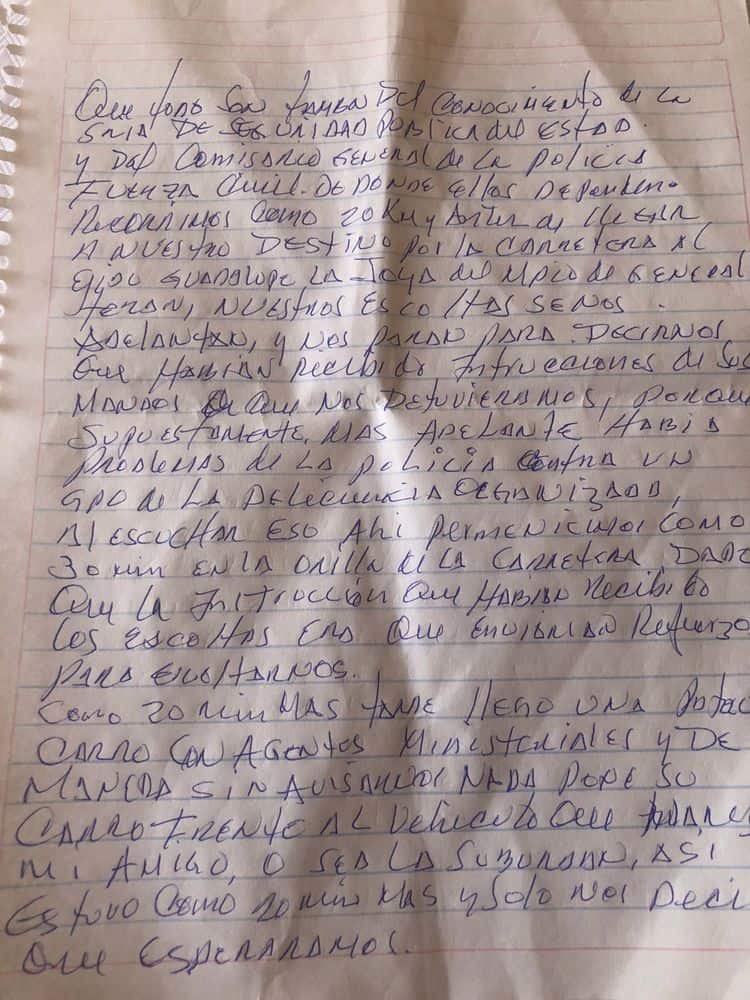 Que todo son tamben del conocimiento de la
SRIA DE SEGURIDAD PUBLICA del ESTADO.
y Del Comisario GENERAL de LA POLICIA
FUERZA Civil. DE DONDE Ellos Dependen.
Recorrimos Como 20 KM y Antes de llegar
A NUESTRO DESTINO por la CARRETERA AL
Ejido GUADALUPE LA JOYA del MPIO de GENERAL
TERAN, NUESTROS ESCOLTAS SE NOS.
ADELANTAN, y NOS PARAN PARA DECIRNOS
Que HABIAN Recibido Intrucciones de Sus
MANDOS Que NOS DETUVIERAMOS, PORQUE
SUPUESTAMENTE, MAS ADELANTE HABIA
PROBLEMAS de LA POLICIA Contra UN
GPO de LA DELICUENCIA ORGANIZADA,
Al ESCUCHAR ESO Ahi permenicimos COMO
30 MIN EN LA ORILLA de LA CARRETERA, DADO
Que la INTRUCCIÓN Que HABIAN Recibido
LOS ESCOLTAS ERA Que ENVIARIAN Refuerzo
PARA ESCOLTARNOS.
Como 20 MIN MAS TARDE llego UNA
CARRO CON AGENTES MINISTERIALES y DE
MANERA SIN AVISARNOS NADA PONE SU
CARRO FRENTE AL Vehiculo Que
MI AMIGO, O SEA LA SUBURBAN, ASI
ESTUVO Como 20 MIN MAS y Solo NOS Deci
Que ESPERARAMOS.